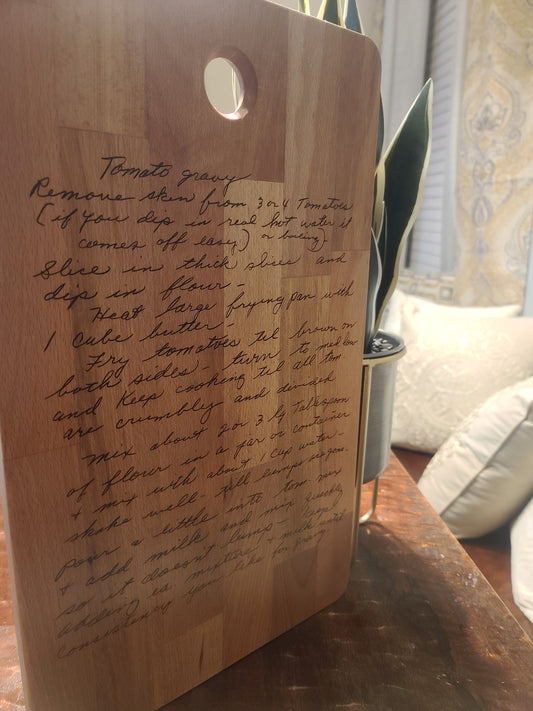 Tomato gravy
Remove skin from 3 or 4 Tomatoes
(if you dip in real hot water it
comes off easy) or boiling
Slice in thick slices and
dip in flour -
Heat large frying pan with
1 cube butter -
Fry tomatoes til brown on
both sides - turn to med low
and keep cooking til all tom.
are crumbly and divided
mix about 2 or 3 lg Tablespoon
of flour in a jar or container
+ mix with about 1 cup water -
shake well - till lumps are gone.
pour a little into tom mix
+ add milk and mix quickly
so it doesn't lump - keep
adding ea mixture + milk until
consistency you like for gravy.